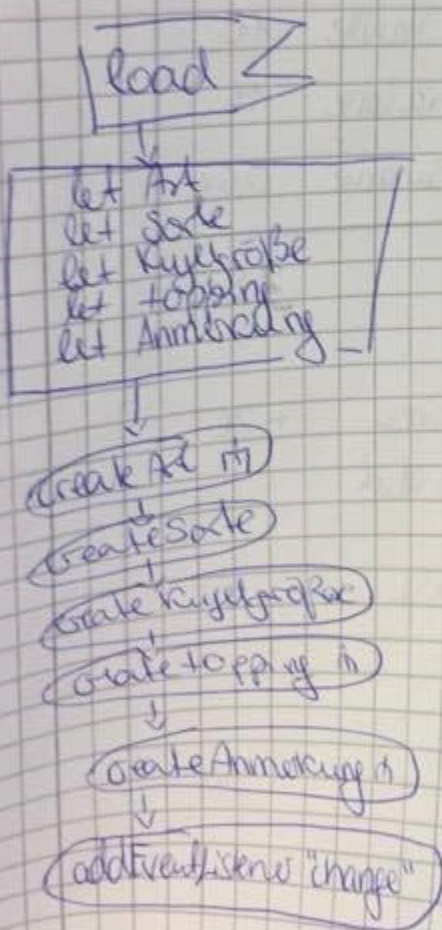 load
let Art
let Sorte
let Kugelgröße
let topping
let Anmerkung
create Art
create Sorte
create Kugelgröße
create topping
create Anmerkung
addEventListener "change"